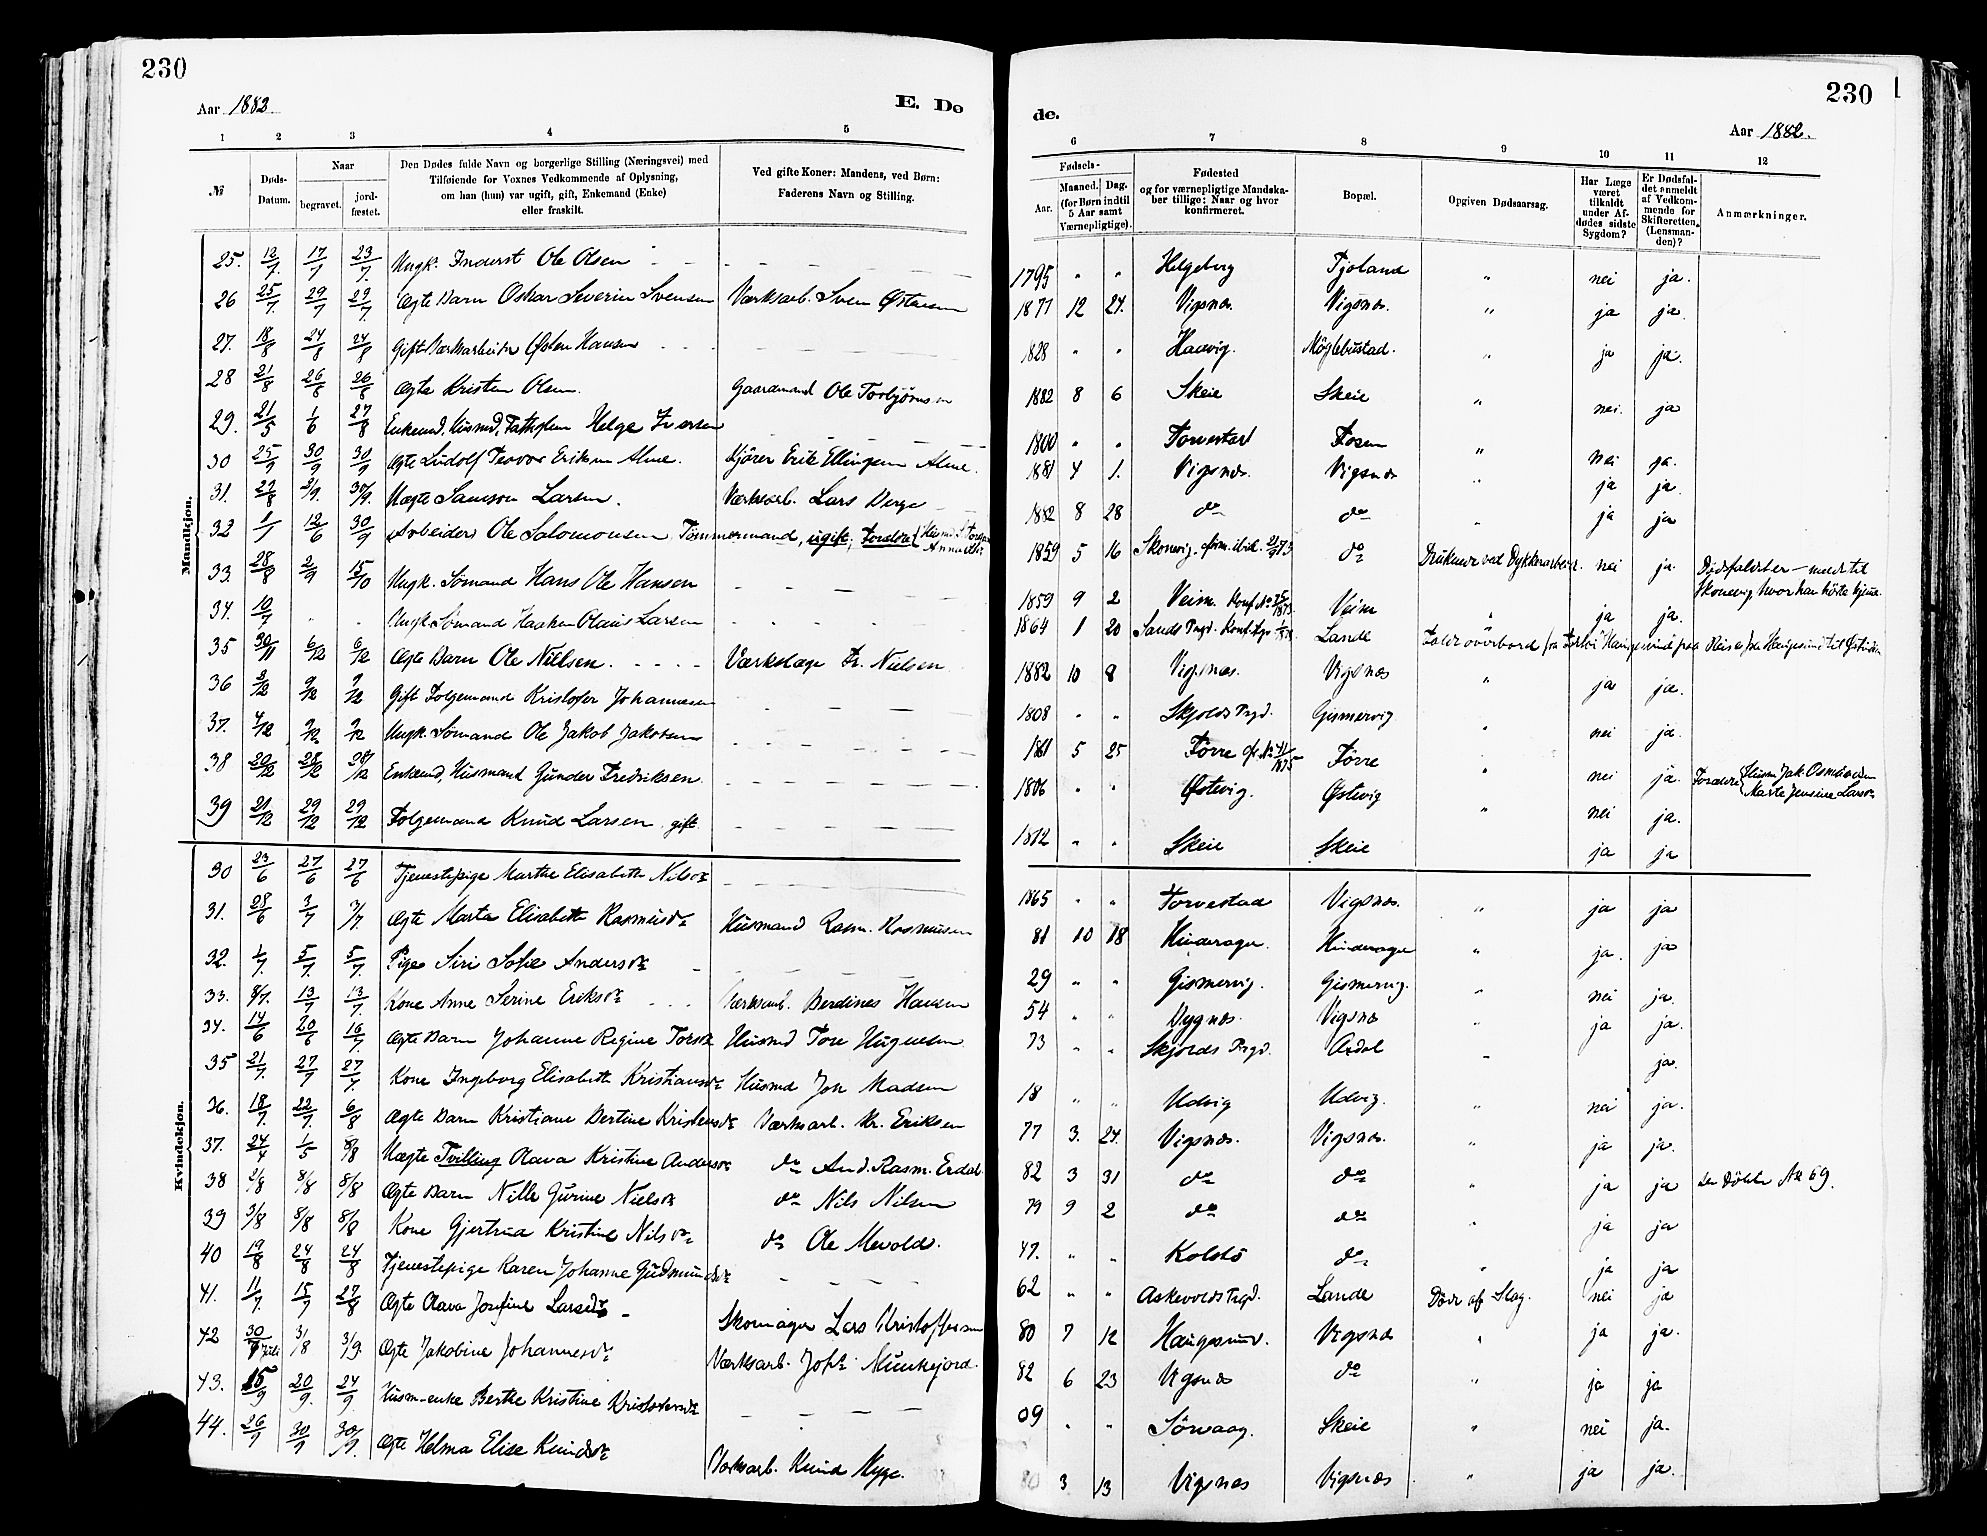 230
Aar 1882.
E. Dø
1 2 3 4 5
№
Døds-Datum.
Naar
begravet.
jord-fæstet.
Den Dødes fulde Navn og borgerlige Stilling (Næringsvei) med
Tilføiende for Voxnes Vedkommende af Oplysning,
om han (hun) var ugift, gift, Enkemand (Enke)
eller fraskilt.
Ved gifte Koner: Mandens, ved Børn:
Faderens Navn og Stilling.
Mandkjøn.
25. 12/7. 17/7 23/7. Ungk. Inderst Ole Olsen
26 25/7. 29/7 29/7 Ægte Barn Oskar Severin Svensen Værksarb. Sven Østensen
27. 18/8 24/8 24/8 Gift Værksarbeider Østen Hansen
28 21/8 26/8 26/8 Ægte Kristen Olsen. Gaardmand Ole Torbjørnsen
29. 21/5 1/6 27/8 Enkemd. Husmd. Helge Iversen
30 25/9 30/9 30/9 Ægte Ludolf Teodor Eriksen Alme. Kjører Erik Ellingsen Alme.
31. 29/8 2/9. 30/9. Uægte Samson Larsen. Værksarb. Lars Berge
32 1/ 12/6 30/9 Arbeider Ole Salomonsen Tømmermand, ugift, Forældre
33. 28/8 2/9 15/10 Ungk. Sømand Hans Ole Hansen
34. 10/7 Ungk. Sømand Haaken Olaus Larsen
35 30/11 6/12 6/12 Ægte Barn Ole Nielsen. Fr. Nielsen
36 2/12 9/12 9/12 Gift Folgemand Kristofer Johannesen
37. 4/12 9/12 9/12 Ungk. Sømand Ole Jakob Jakobsen
38 20/12 28/12 28/12 Enkemd, Husmand Gunder Fredriksen.
39 21/12 29/12 29/12 Folgemand Knud Larsen gift.
Kvindekjøn.
30 23/6 27/6 27/6 Tjenestepige Marthe Elisabeth Nilsdr
31. 28/6 3/7 3/7 Ægte Marta Elisabeth Rasmusdr Husmand Rasm. Rasmusen
32. 1/7. 5/7. 5/7. Pige Siri Sofie Andersdr
33. 8/7. 13/7 13/7. Kone Anne Serine Eriksdr Værksarb. Berdines Hansen
34. 14/6 20/6 16/7. Ægte Barn Johanne Regine Toresdr Husmd Tore Hugnesen
35 21/7. 27/7 27/7. Kone Ingeborg Elisabeth Kristiansdr Husmd Jon Madsen
36. 18/7. 22/7. 6/8 Ægte Barn Kristiane Bertine Kristensdr Værksarb. Kr. Eriksen
37. 24/4 1/5 8/8 Uægte Tvilling Olava Kristine Andersdr do And. Rasm. Erdal.
38 2/8 8/8 8/8 Ægte Barn Nille Gurine Nielsdr do Nils Nilsen
39 3/8 8/8 8/8 Kone Gjertrud Kristine Nilsdr. do Ole Mevold.
40 19/8 24/8 24/8 Tjenestepige Karen Johanne Gudmundsdr
41. 11/7. 15/7 27/8 Ægte Olava Josefine Larsdr Skomager Lars Kristoffersen
42 30/7 Juli 31/8 3/9. Ægte Jakobine Johannesdr. Værksarb. Johs. Munkejord.
43. 15/9 20/9. 24/9 Husm-enke Berthe Kristine Kristofersdr
44. 26/9 30/9 30/9. Ægte Helma Elise Knudsdr Værksarb. Knud Myge.
230
de.
Aar 1882.
6 7 8 9 10 11 12
Fødsels-
Aar.
Maaned. Dag.
(for Børn indtil
5 Aar samt
Værnepligtige).
Fødested
og for værnepligtige Mandska-
ber tillige: Naar og hvor
konfirmeret.
Bopæl.
Opgiven Dødsaarsag.
Har Læge
været
tilkaldt
under Af-
dødes sidste
Sygdom?
Er Dødsfal-
det anmeldt
af Vedkom-
mende for
Skifteretten.
(Lensman-
den)?
Anmærkninger.
1795 " " Helgeberg Tjoland " nei ja.
1877 12 27. Vigsnæs. Vigsnæs. " ja ja.
1828 " " Haavig. Møglebustad. " ja ja.
1882 8 6 Skeie Skeie " nei. ja
1800 " " Torvestad Fosen " nei ja.
1881 4 1. Vigsnæs. Vigsnæs " ja ja.
1882 8 28 do do " ja ja
1859 5 16 Skonevig. do Druknede ved Dykkerarbeid. nei ja. Dødsfaldet er meldt til
Skonevig hvor han hørte hjem.
1859 9 2 Veim. Konf. Veim " ja ja.
1864 1 20 Sands Prgd. Lande Faldt overbord
1882 10 8 Vigsnæs. Vigsnæs " ja ja.
1808 " " Skjolds Prgd. Gismervig " nei ja.
1861 5 25 Førre 1875 Førre " nei ja. Forældre Husm. Jak. Osmundsen
Marte Jensine Larsdr
1806 " " Østevig. Østevig " nei ja.
1812 " " Skeie Skeie ja ja
1865 " " Torvestad Vigsnæs. " ja ja
81 10 18 Hinderager. Hinderager " ja. ja
29 " " Gismervig. Gismervig. " nei ja.
54 " " Vygnæs. Vigsnæ " ja ja.
73 " " Skjolds Prgd. " ja.
18 " " Udvig Udvig. " nei ja.
77 3. 24. Vigsnæs. Vigsnæs. " ja ja.
82 3 31 do do " ja ja Se Døbte № 69.
79 9 2 do do " ja ja
47. " " Kolstø do " ja ja
62 " " Askevolds Prgd. Lande Døde af Slag. nei ja
80 7 12 Haugesund. Vigsnæs " ja ja.
82 6 23 Vigsnæs do " ja ja
09 " " Sørvaag. Skeie " nei ja.
80 3 13 Vigsnæs Vigsnæs " ja ja.